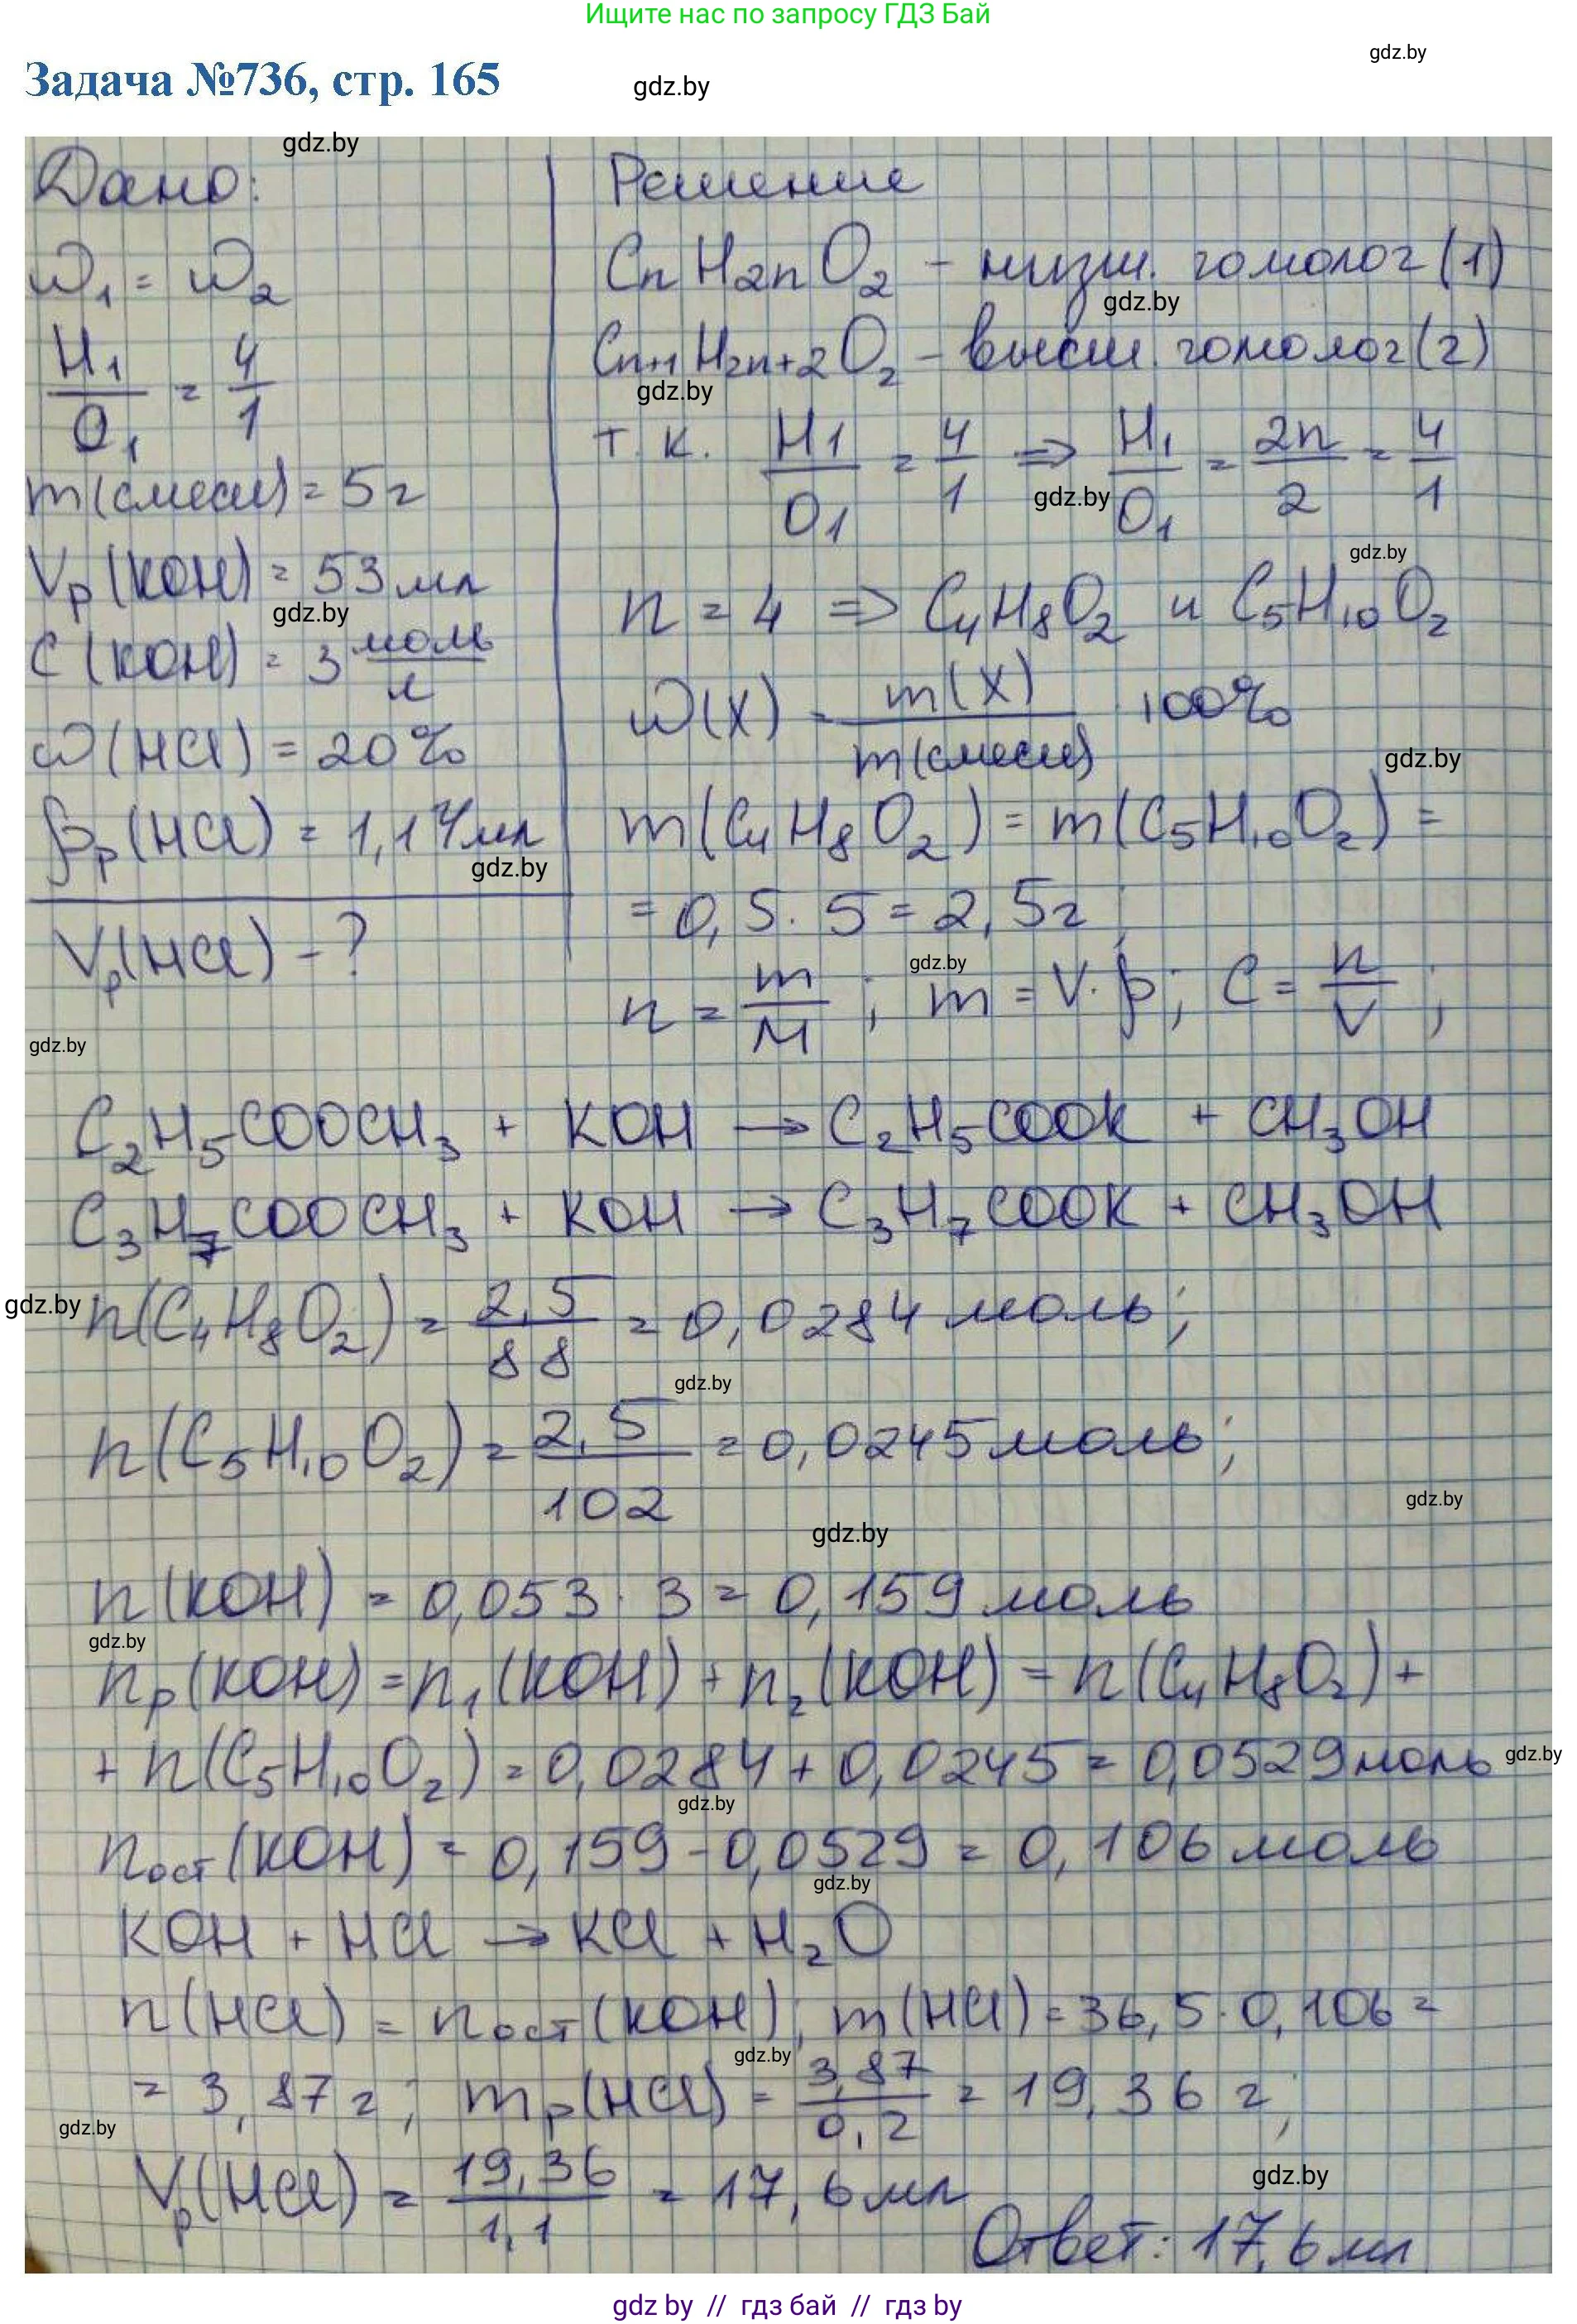 Ищите нас по запросу ГДЗ Бай
gdz.by
Задача №736, стр. 165
gdz.by
gdz.by
Дано:
ω₁ = ω₂
H₁/O₁ = 4/1
m(смеси) = 5г
Vр(KOH) = 53мл
gdz.by
C(KOH) = 3 моль/л
ω(HCl) = 20%
ρр(HCl) = 1,14мл
gdz.by
Vр(HCl) - ?
gdz.by
Решение
CnH2nO₂ - низш. гомолог (1)
gdz.by
Cn+1H2n+2O₂ - высш. гомолог (2)
gdz.by
т.к. H₁/O₁ = 4/1 => H₁/O₁ = 2n/2 = 4/1
gdz.by
gdz.by
n = 4 => C₄H₈O₂ и C₅H₁₀O₂
ω(X) = m(X)/m(смеси) · 100%
gdz.by
m(C₄H₈O₂) = m(C₅H₁₀O₂) =
= 0,5 · 5 = 2,5г;
gdz.by
n = m/M ; m = V · ρ ; C = n/V ;
C₂H₅COOCH₃ + KOH → C₂H₅COOK + CH₃OH
C₃H₇COOCH₃ + KOH → C₃H₇COOK + CH₃OH
gdz.by
n(C₄H₈O₂) = 2,5/88 = 0,0284 моль;
gdz.by
n(C₅H₁₀O₂) = 2,5/102 = 0,0245 моль;
gdz.by
gdz.by
n(KOH) = 0,053 · 3 = 0,159 моль
gdz.by
nр(KOH) = n₁(KOH) + n₂(KOH) = n(C₄H₈O₂) +
+ n(C₅H₁₀O₂) = 0,0284 + 0,0245 = 0,0529 моль
gdz.by
gdz.by
nост(KOH) = 0,159 - 0,0529 = 0,106 моль
gdz.by
KOH + HCl → KCl + H₂O
n(HCl) = nост(KOH); m(HCl) = 36,5 · 0,106 =
gdz.by
= 3,87г; mр(HCl) = 3,87/0,2 = 19,36 г;
gdz.by
Vр(HCl) = 19,36/1,1 = 17,6 мл
gdz.by
Ответ: 17,6 мл
gdz by // гдз бай // гдз by